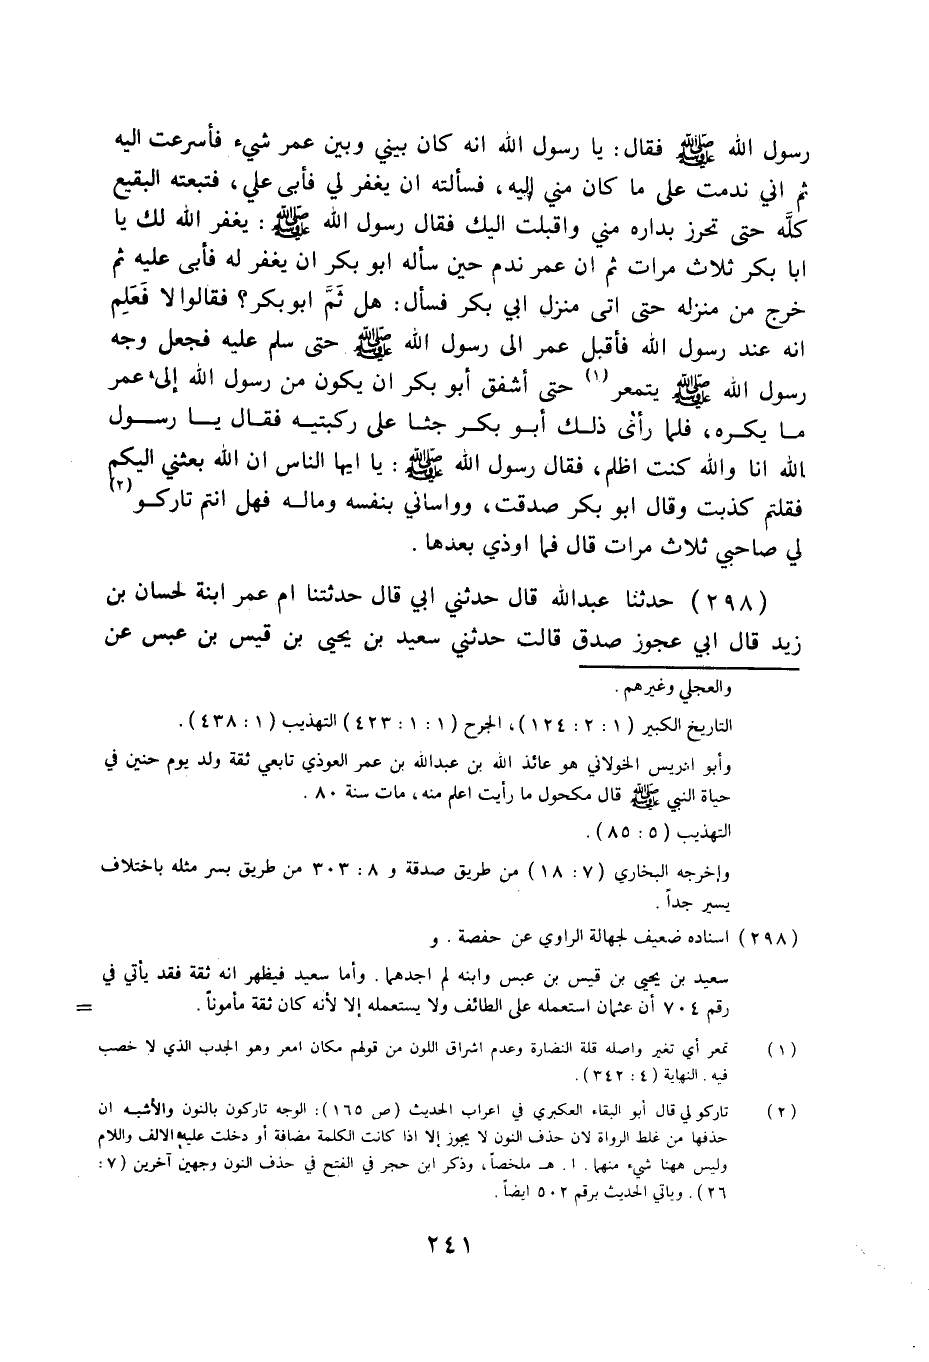 رسول الله ﷺ فقال: يا رسول الله انه كان بيني وبين عمر شيء فأسرعت اليه
ثم اني ندمت على ما كان مني إليه، فسألته ان يغفر لي فأبى علي، فتبعته البقيع
كلَّه حتى تحرز بداره مني واقبلت اليك فقال رسول الله ﷺ: يغفر الله لك يا
ابا بكر ثلاث مرات ثم ان عمر ندم حين سأله ابو بكر ان يغفر له فأبى عليه ثم
خرج من منزله حتى اتى منزل ابي بكر فسأل: هل ثَمَّ ابو بكر؟ فقالوا لا فَعَلِم
انه عند رسول الله فأقبل عمر الى رسول الله ﷺ حتى سلم عليه فجعل وجه
رسول الله ﷺ يتمعر (١) حتى أشفق أبو بكر ان يكون من رسول الله إلى عمر
ما يكره، فلما رأى ذلك أبو بكر جثا على ركبتيه فقال يا رسول
الله انا والله كنت اظلم، فقال رسول الله ﷺ: يا ايها الناس ان الله بعثني اليكم
فقلتم كذبت وقال ابو بكر صدقت، وواساني بنفسه وماله فهل انتم تاركو (٢)
لي صاحبي ثلاث مرات قال فما اوذي بعدها.
(٢٩٨) حدثنا عبدالله قال حدثني ابي قال حدثتنا ام عمر ابنة لحسان بن
زيد قال ابي عجوز صدق قالت حدثني سعيد بن يحيى بن قيس بن عبس عن
والعجلي وغيرهم.
التاريخ الكبير (١: ٢: ١٢٤)، الجرح (١: ١: ٤٢٣) التهذيب (١: ٤٣٨).
وأبو ادريس الخولاني هو عائذ الله بن عبدالله بن عمر العوذي تابعي ثقة ولد يوم حنين في
حياة النبي ﷺ قال مكحول ما رأيت اعلم منه، مات سنة ٨٠.
التهذيب (٥: ٨٥).
وإخرجه البخاري (٧: ١٨) من طريق صدقة و ٨: ٣٠٣ من طريق بسر مثله باختلاف
يسير جداً.
(٢٩٨) اسناده ضعيف لجهالة الراوي عن حفصة. و
سعيد بن يحيى بن قيس بن عبس وابنه لم اجدهما. وأما سعيد فيظهر انه ثقة فقد يأتي في
رقم ٧٠٤ أن عثمان استعمله على الطائف ولا يستعمله إلا لأنه كان ثقة مأموناً. =
(١) تمعر أي تغير واصله قلة النضارة وعدم اشراق اللون من قولهم مكان امعر وهو الجدب الذي لا خصب
فيه. النهاية (٤: ٣٤٢).
(٢) تاركو لي قال أبو البقاء العكبري في اعراب الحديث (ص ١٦٥): الوجه تاركون بالنون والأشبه ان
حذفها من غلط الرواة لان حذف النون لا يجوز إلا اذا كانت الكلمة مضافة أو دخلت عليه الالف واللام
وليس ههنا شيء منهما. ا. هـ ملخصاً، وذكر ابن حجر في الفتح في حذف النون وجهين آخرين (٧:
٢٦). وياتي الحديث برقم ٥٠٢ ايضاً.
٢٤١